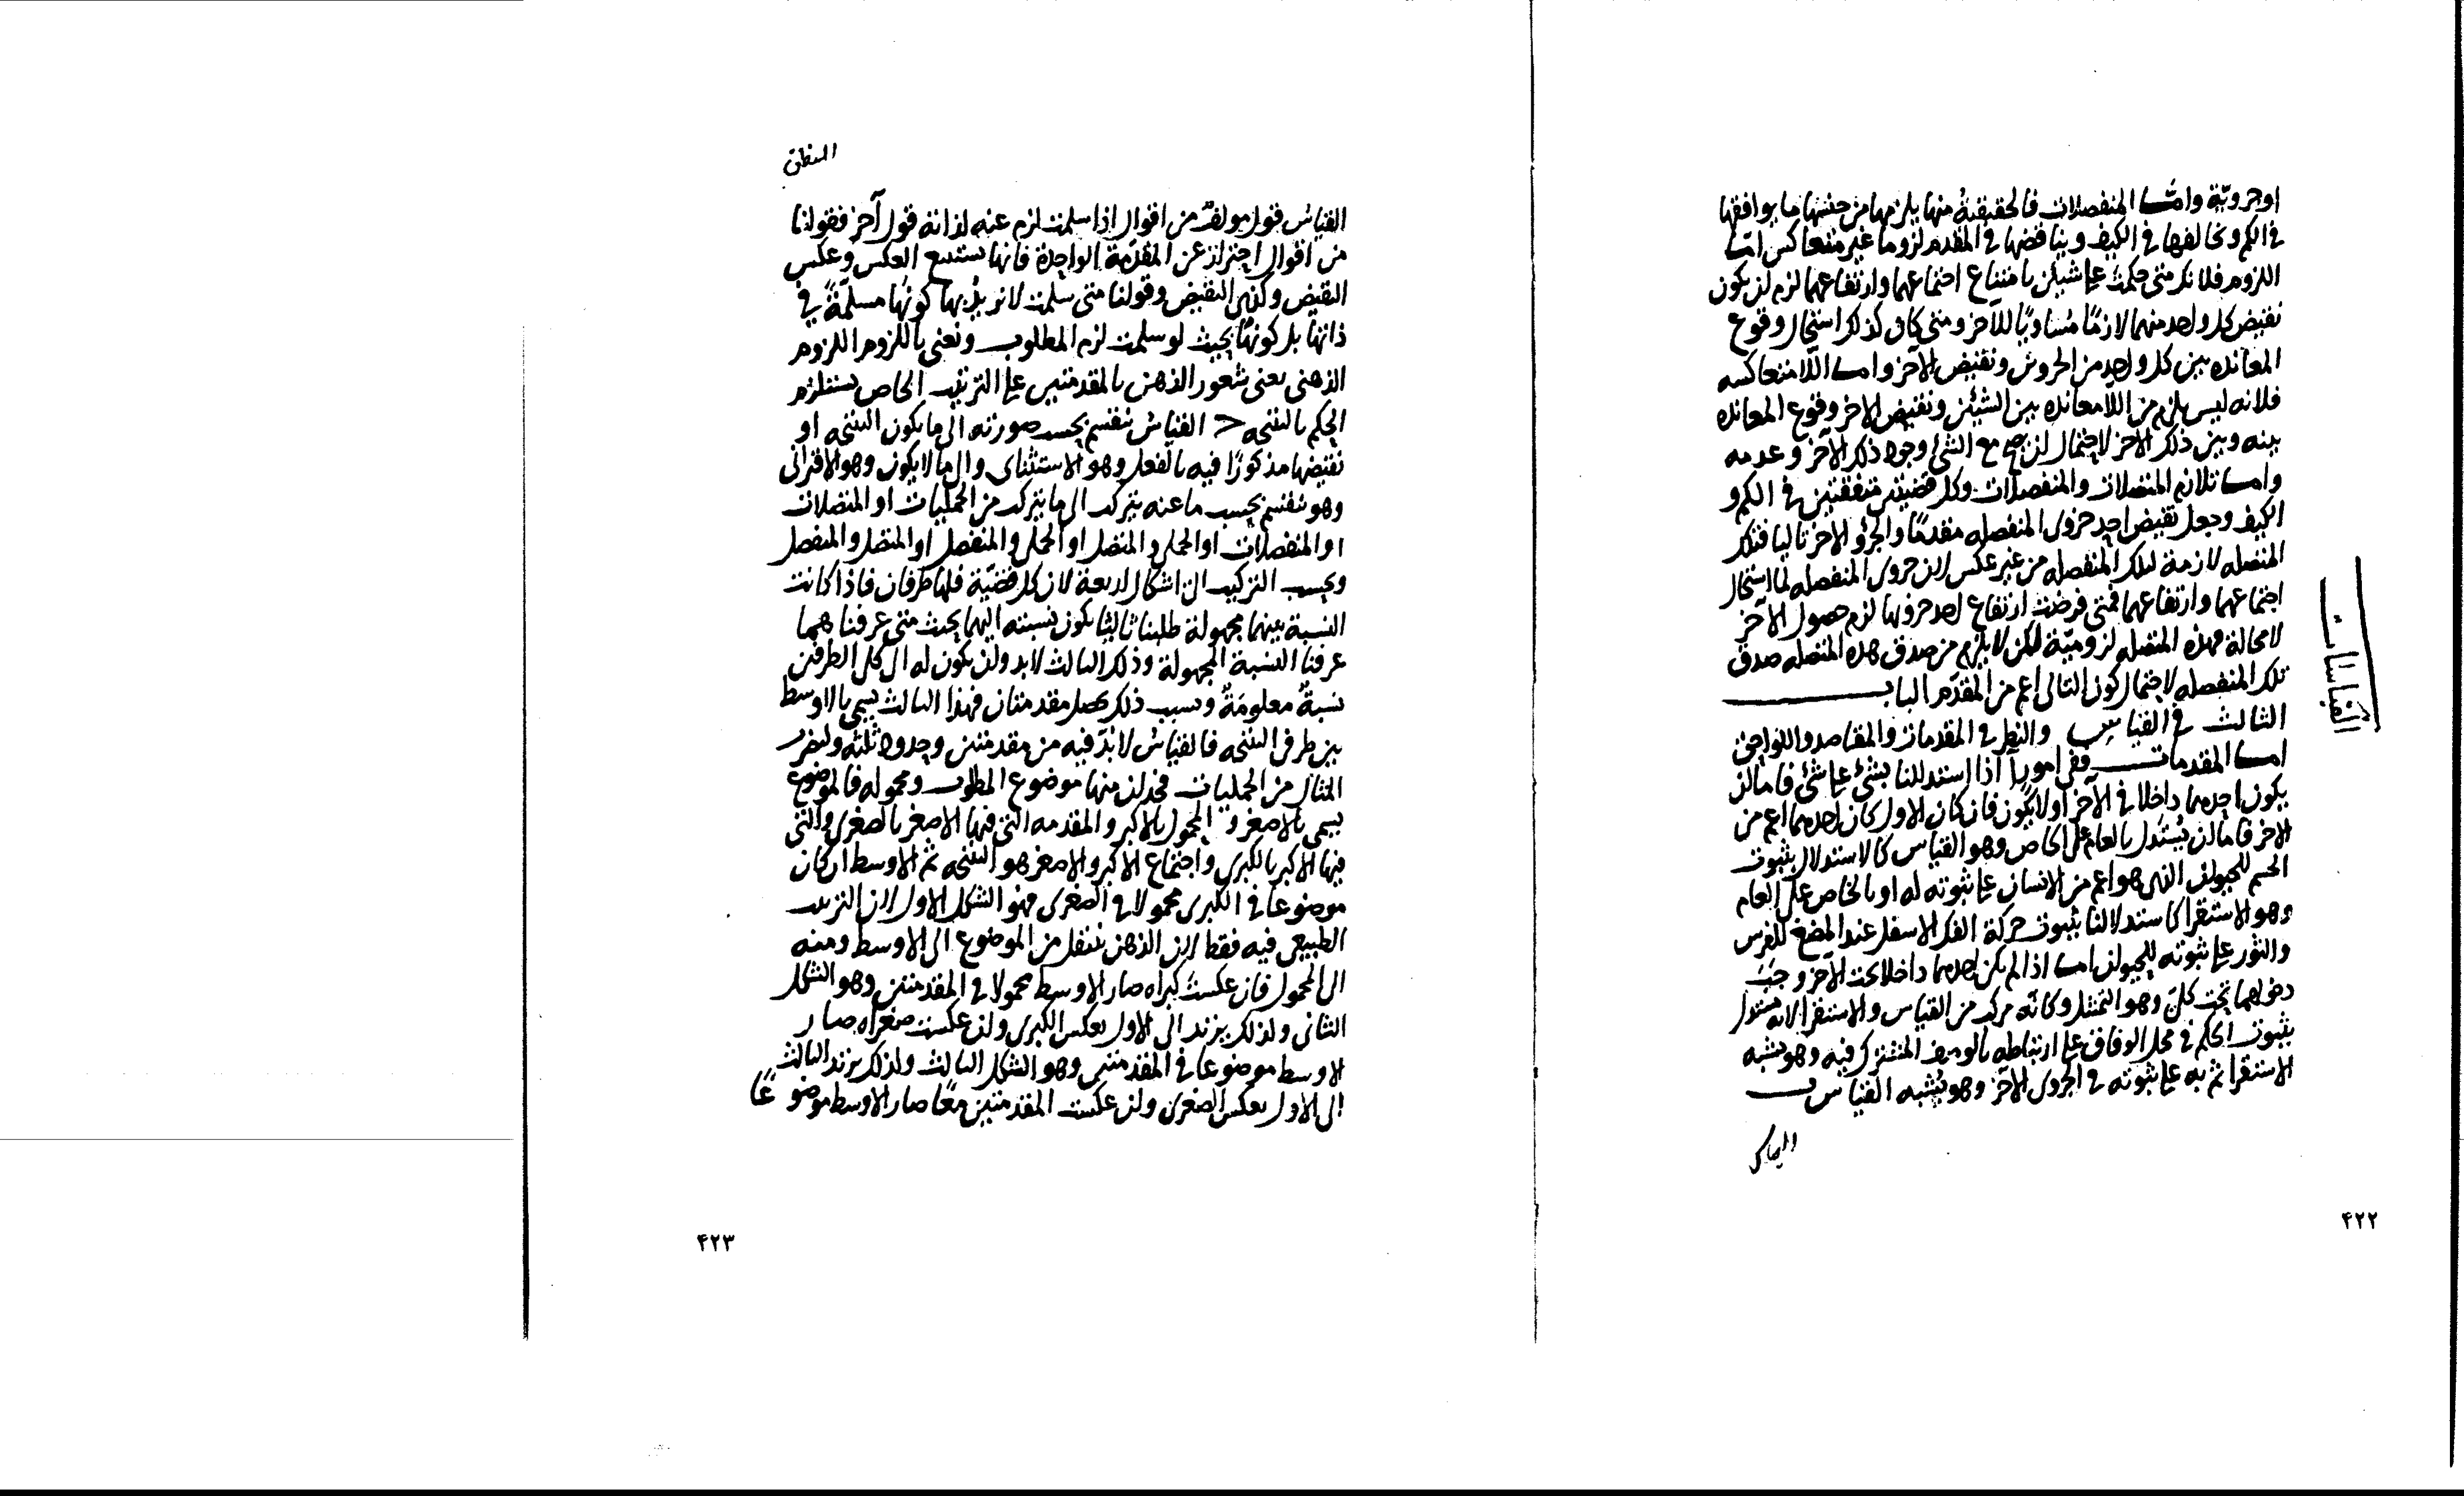 او جزويّة وامّا المنفصلات فالحقيقيةُ منها يلزمها من جنسها ما يوافقها
في الكم ويخالفها في الكيف ويناقضها في المقدم لزوما غير متعاكس امّا
اللزوم فلانك متى حكمت على شيئين بامتناع اجتماعهما وارتفاعهما لزم ان يكون
نقيض كل واحد منهما لازمًا مُساويًا للآخر ومتى كان كذلك استحال وقوع
المعانده بين كل واحد من الجزوين ونقيض الآخر واما اللّا متعاكسه
فلانه ليس يلزم من اللّامعانده بين الشيئين ونقيض الاخر وقوع المعانده
بينه وبين ذلك الاخر لاحتمال ان يصح مع الشئ وجود ذلك الآخر وعدمه
واما تلازم المتصلات والمنفصلات وكل قضيتين متفقتين في الكم و
الكيف وجعل نقيض احد جزوى المنفصله مقدمًا والجزؤ الاخر تاليا فتلك
المتصله لازمة لتلك المنفصله من غير عكس لان جزوى المنفصله لما استحال
اجتماعهما وارتفاعهما فمتى فرضت ارتفاع احد جزويها لزم حصول الآخر
لا محالة فهذه المتصله لزوميّة لكن لا يلزم من صدق هذه المتصله صدق
تلك المنفصله لاحتمال كون التالى اعم من المقدّم الباب
الثالث في القياس والنظر في المقدمات والمقاصد واللواحق
اما المقدمات ففى امور آ اذا استدللنا بشئ على شئ فاما ان
يكون احدهما داخلا في الآخر اولا يكون فان كان الاول كان احدهما اعم من
الآخر فاما ان يُستدل بالعام على الخاص وهو القياس كالاستدلال بثبوت
الجسم للحيوان الذى هو اعم من الانسان على ثبوته له او بالخاص على العام
وهو الاستقرا كاستدلالنا بثبوت حركة الفك الاسفل عند المضغ للفرس
والثور على ثبوته للحيوان اما اذا لم يكن احدهما داخلا تحت الآخر وجبَ
دخولهما تحت كلىّ وهو التمثيل وكانه مركب من القياس والاستقرا لانه يستدل
بثبوت الحكم في محل الوفاق على ارتباطه بالوصف المشترك فيه وهو يشبه
الاستقرا ثم به على ثبوته في الجزوى الآخر وهو يُشبه القياس
القياسات
۴۲۲
المنطق
القياسُ قول مولفٌ من اقوال اذا سلمت لزم عنه لذاته قول آخر فقولنا
من اقوال احتراز عن المقدّمة الواحدة فانها تستتبع العكس وعكس
النقيض وكذب النقيض وقولنا متى سلمت لا نريدُ بها كونها مسلّمةً في
ذاتها بل كونها بحيث لو سلمت لزم المطلوب ونعنى باللزوم اللزوم
الذهنى يعنى شعور الذهن بالمقدمتين على الترتيب الخاص يستلزم
الحكم بالنتيجه ح القياسُ ينقسم بحسب صورته الى ما يكون النتيجه او
نقيضها مذكورًا فيه بالفعل وهو الاستثناى والى ما لا يكون وهو الاقترانى
وهو ينقسم بحسب ما عنه يتركب الى ما يتركب من الحمليات او المتصلات
او المنفصلات او الحملى والمتصل او الحملى والمنفصل او المتصل والمنفصل
وبحسب التركيب الى اشكال اربعة لان كل قضيّة فلها طرفان فاذا كانت
النسبة بينهما مجهولة طلبنا ثالثا يكون نسبته اليهما بحيث متى عرفناهما
عرفنا النسبة المجهولة وذلك الثالث لابد وان يكون له الى كل الطرفين
نسبةٌ معلومةٌ وبسبب ذلك يحصل مقدمتان فهذا الثالث يسمى بالاوسط
بين طرفى النتيجه فالقياسُ لا بدّ فيه من مقدمتين وحدود ثلثه ولنضرب
المثال من الحمليات فحدان منها موضوع المطلوب ومحموله فالموضوع
يسمى بالاصغر و المحمول بالاكبر والمقدمه التى فيها الاصغر بالصغرى والتى
فيها الاكبر بالكبرى واجتماع الاكبر والاصغر هو النتيجه ثم الاوسط ان كان
موضوعا في الكبرى محمولا في الصغرى فهو الشكل الاول لان الترتيب
الطبيعى فيه فقط لان الذهن ينتقل من الموضوع الى الاوسط ومنه
الى المحمول فان عكست كبراه صار الاوسط محمولا في المقدمتين وهو الشكل
الثانى ولذلك يرتد الى الاول بعكس الكبرى وان عكست صغراه صار
الاوسط موضوعا في المقدمتين وهو الشكل الثالث ولذلك يرتد الثالث
الى الاول بعكس الصغرى وان عكست المقدمتين معًا صار الاوسط موضوعًا
۴۲۳